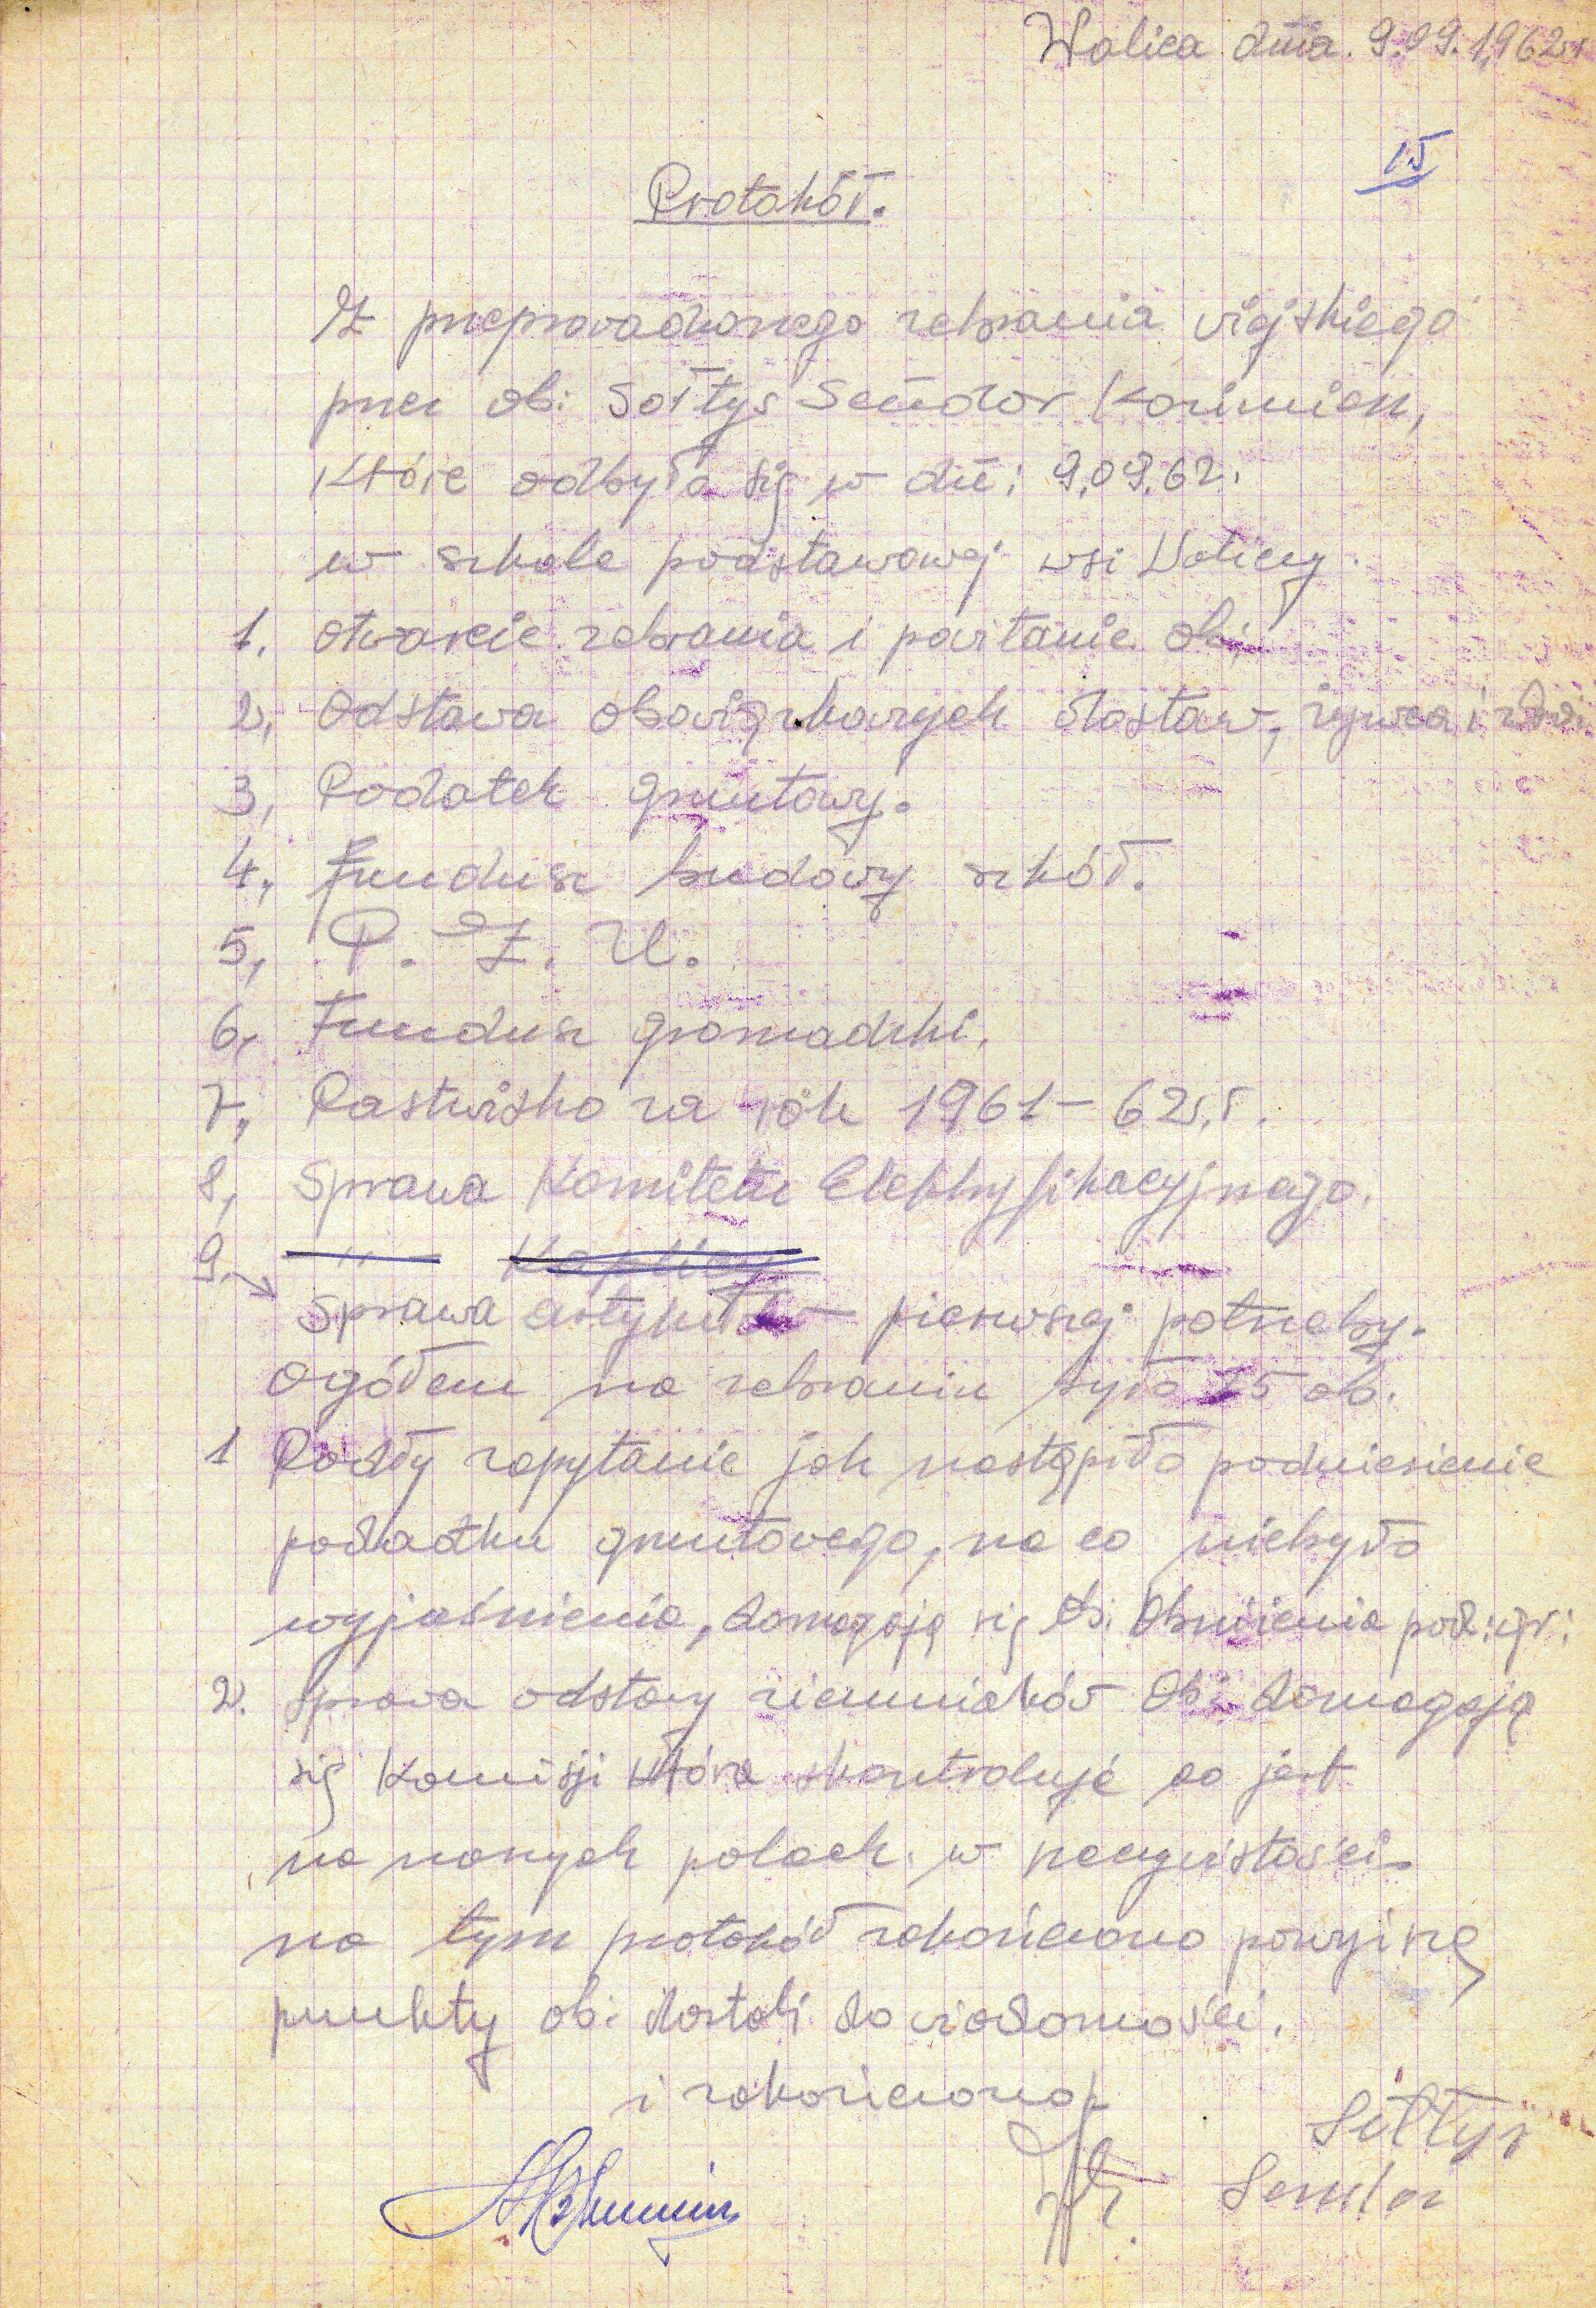 Wolica dnia. 9.09.1962r
15
Protokół.
Z przeprowadzonego zebrania wiejskiego
przez ob: Sołtys Sendor Kazimierz,
które odbyło się w dn: 9.09.62.
w szkole podstawowej wsi Wolicy.
1. otwarcie zebrania i powitanie ob;
2, Odstawa obowiązkowych dostaw, żywca i
3, Podatek gruntowy.
4, Fundusz budowy szkół.
5, P. Z. U.
6, Fundusz gromadzki.
7, Pastwisko za rok 1961-62r.
8, Sprawa Komitetu Elektryfikacyjnego.
9. —"— Kaplicy
Sprawa artykułów pierwszej potrzeby.
Ogółem na zebraniu było 75 ob.
1 Padły zapytanie jak nastąpiło podniesienie
podatku gruntowego, na co niebyło
wyjaśnienia, domagają się Ob. Obniżenia pod: gr:
2. Sprawa odstawy ziemniaków Ob: domagają
się Komisji która skontroluje co jest
na naszych polach. w rzeczywistości.
na tym protokół zakończono powyższe
punkty ob: dostali do wiadomości.
i zakończono
Sołtys
Sendor